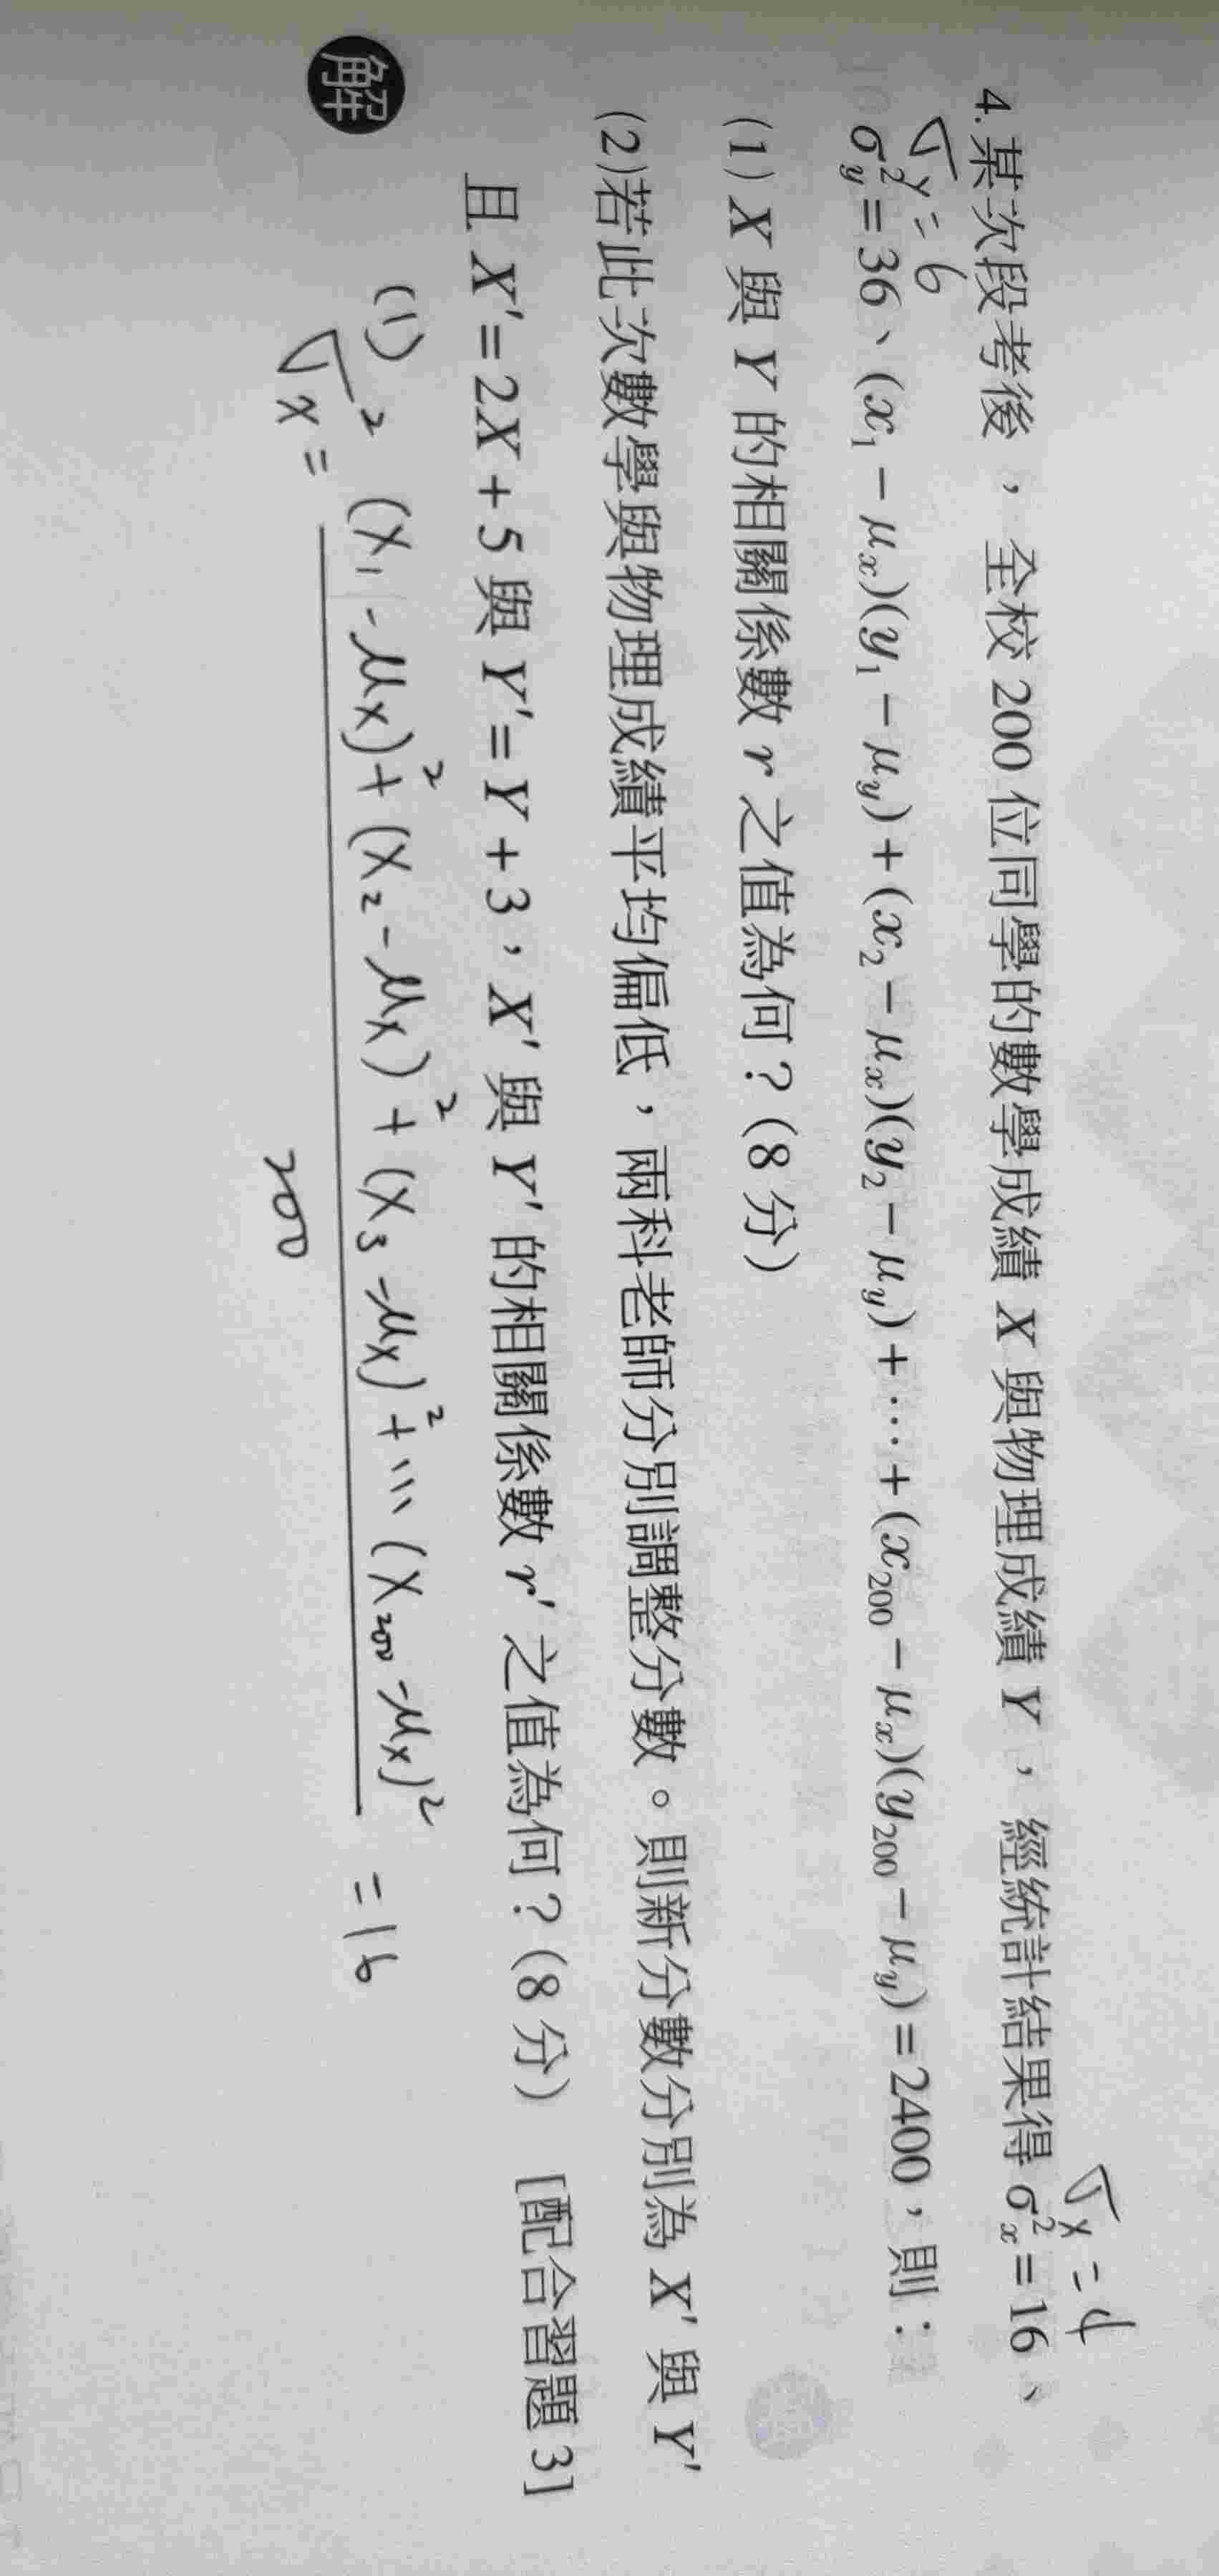 σx = 4
4.某次段考後，全校 200 位同學的數學成績 X 與物理成績 Y，經統計結果得 σx² = 16、
σY = 6
σy² = 36、(x₁ − μx)(y₁ − μy) + (x₂ − μx)(y₂ − μy) + ⋯ + (x₂₀₀ − μx)(y₂₀₀ − μy) = 2400，則：
(1) X 與 Y 的相關係數 r 之值為何？(8 分)
(2)若此次數學與物理成績平均偏低，兩科老師分別調整分數。則新分數分別為 X′ 與 Y′
且 X′ = 2X + 5 與 Y′ = Y + 3，X′ 與 Y′ 的相關係數 r′ 之值為何？(8 分) [配合習題 3]
解
(1)
σx² = (x₁ - μx)² + (x₂ - μx)² + (x₃ - μx)² + ... (x₂₀₀ - μx)² = 16
200